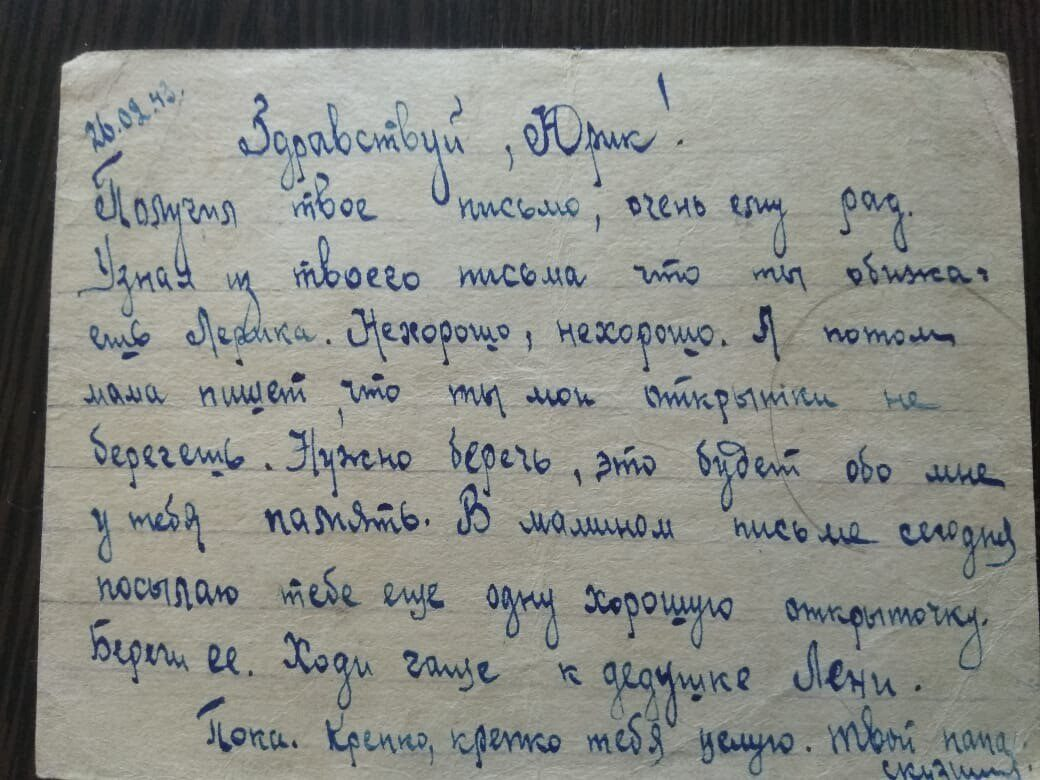 26.02.43.
Здравствуй, Юрик!
Получил твое письмо, очень ему рад.
Узнал из твоего письма что ты обижа-
ешь Лерика. Нехорошо, нехорошо. А потом
мама пишет, что ты мои открытки не
бережешь. Нужно беречь, это будет обо мне
у тебя память. В мамином письме сегодня
посылаю тебе еще одну хорошую открыточку.
Береги ее. Ходи чаще к дедушке Лени.
Пока. Крепко, крепко тебя целую. Твой папа